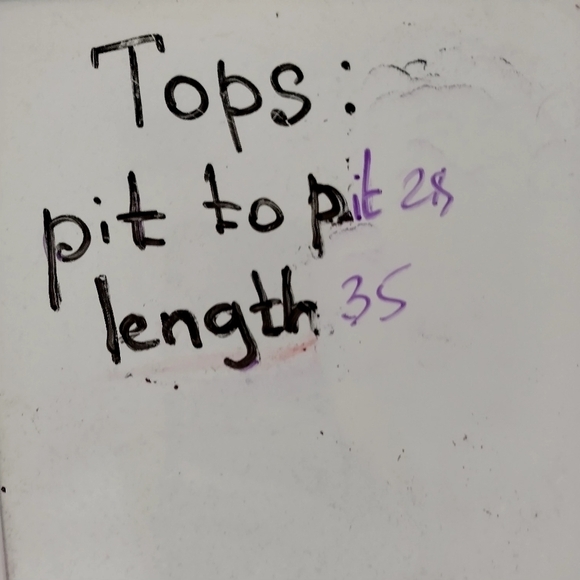 Tops:
pit to pit 28
length 35